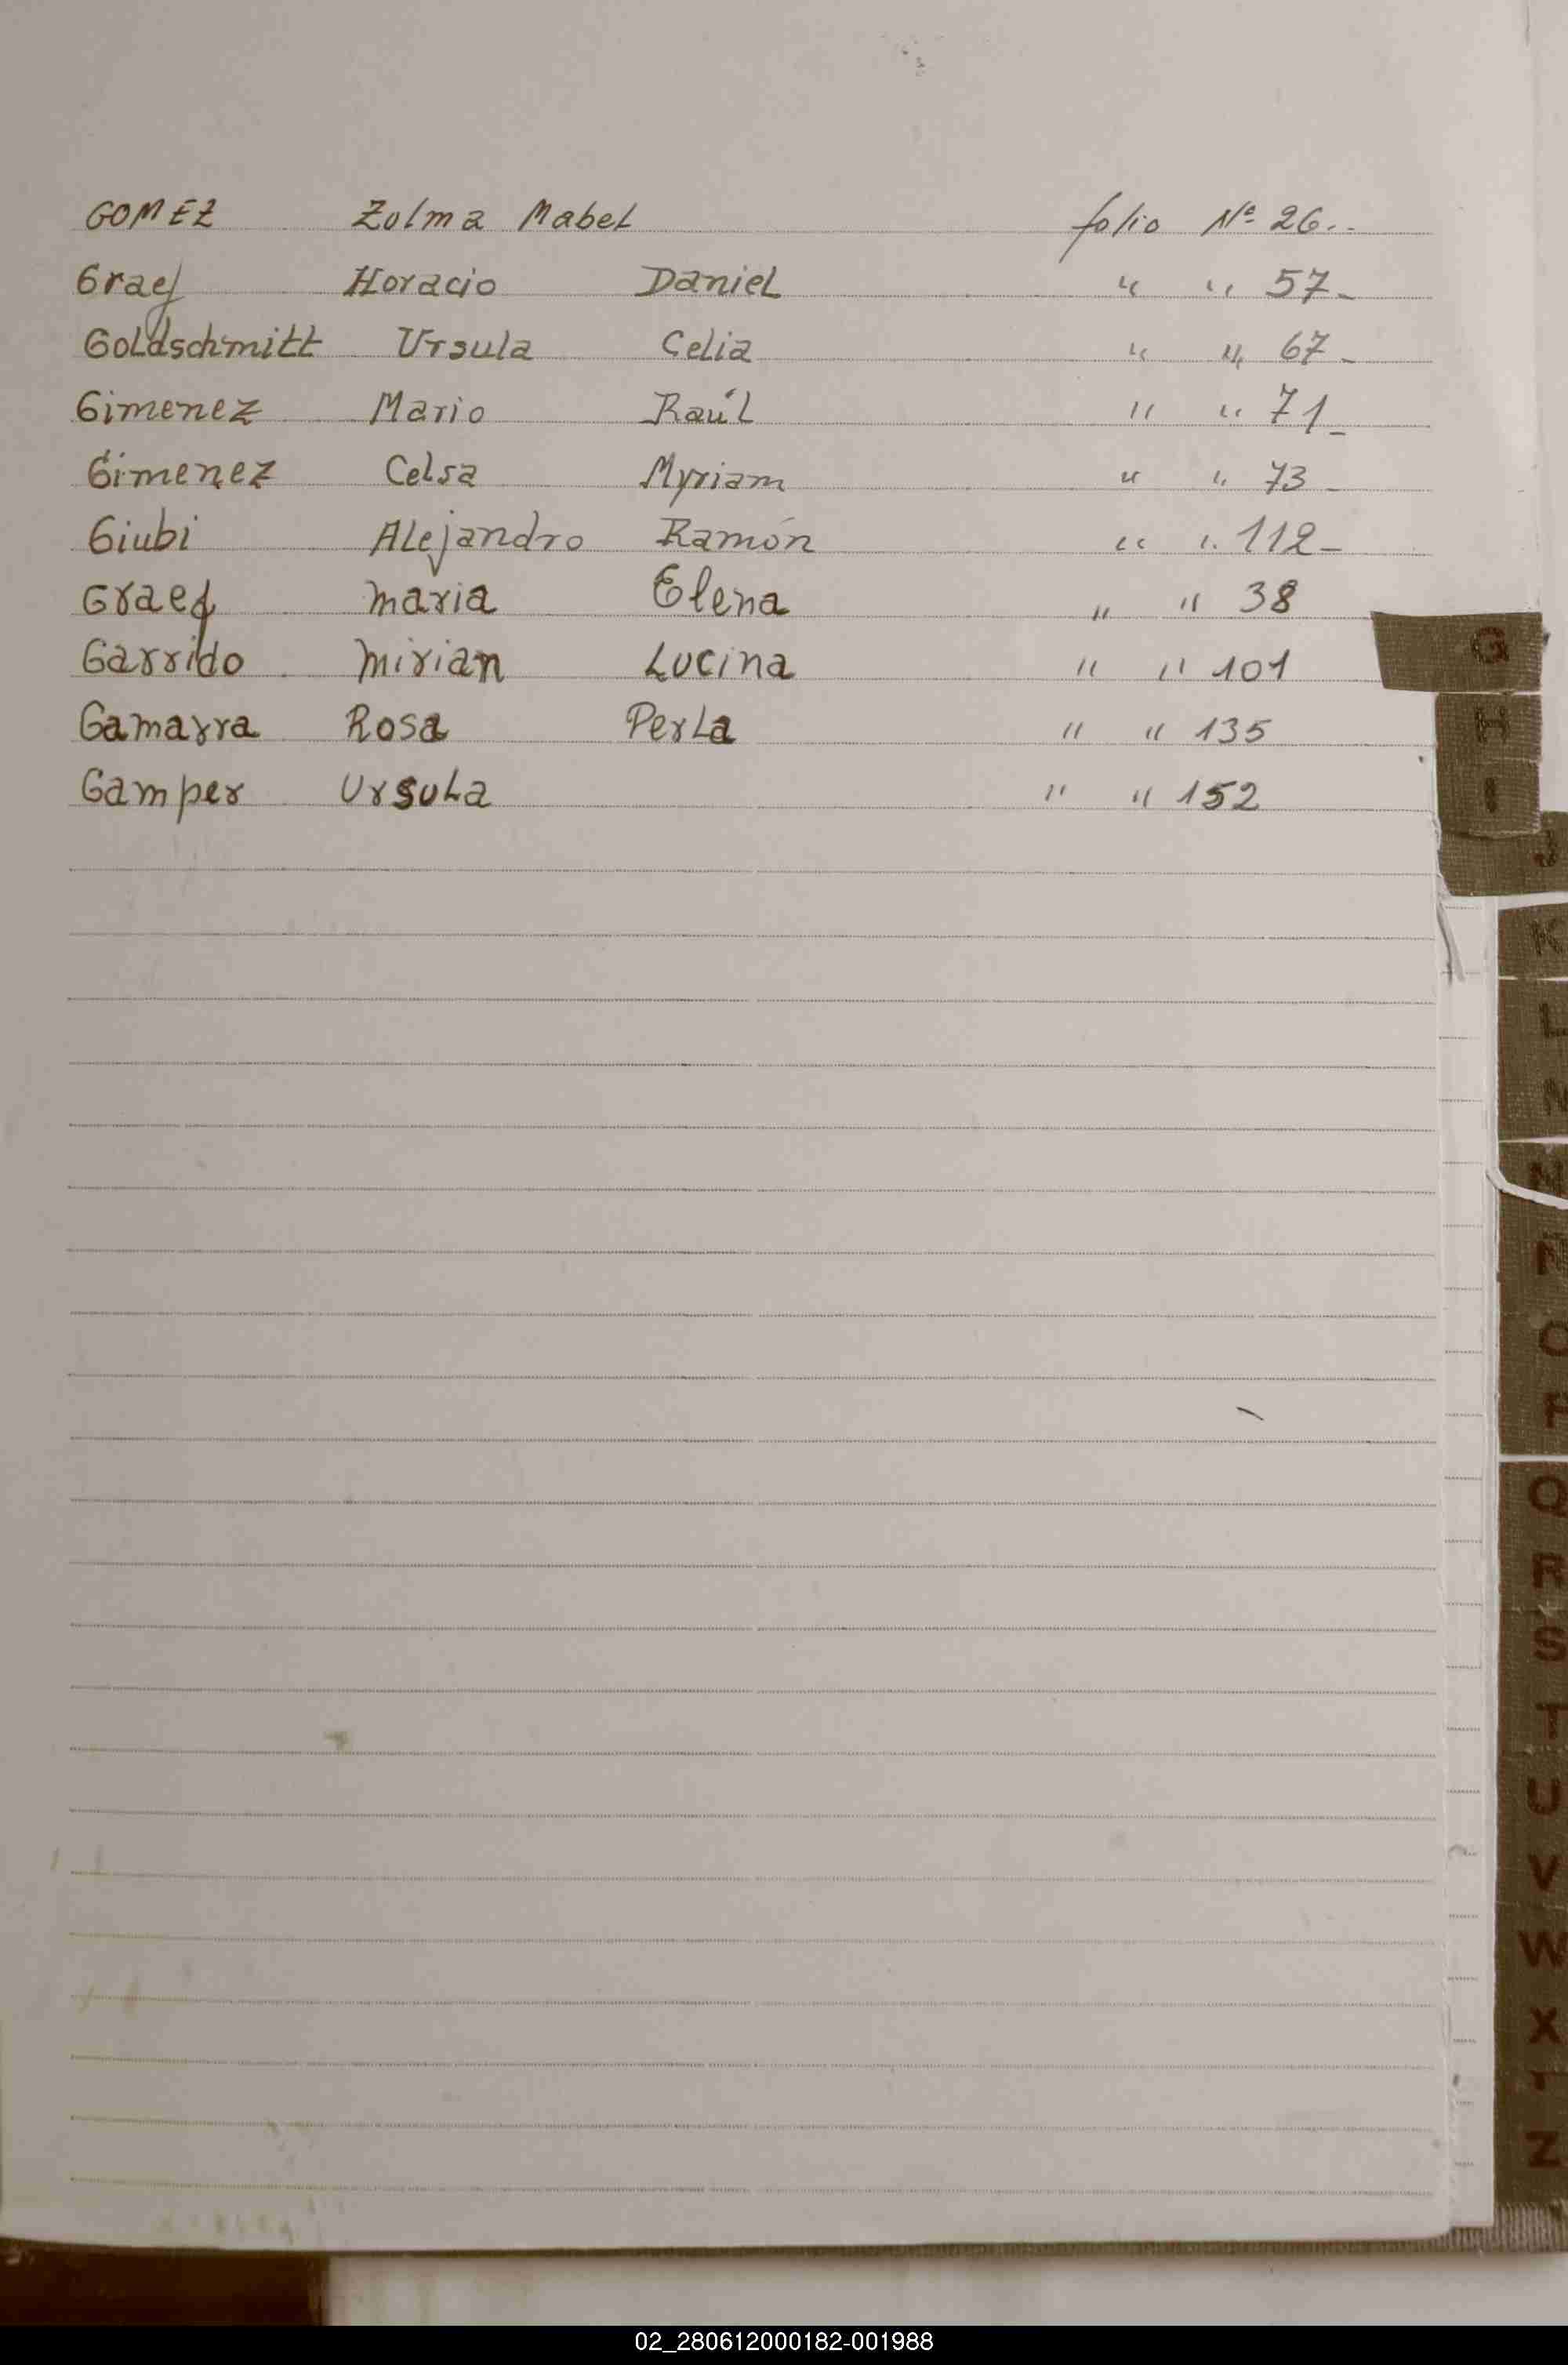 GOMEZ Zulma Mabel folio Nº 26..
Graef Horacio Daniel " " 57-
Goldschmitt Ursula Celia " " 67-
Gimenez Mario Raúl " " 71-
Gimenez Celsa Myriam " " 73-
Giubi Alejandro Ramón " " 112-
Graef maria Elena " " 38
Garrido mirian Lucina " " 101
Gamarra Rosa Perla " " 135
Gamper Ursula " " 152
G
H
I
J
K
L
N
O
P
Q
R
S
T
U
V
W
X
Z
02_280612000182-001988